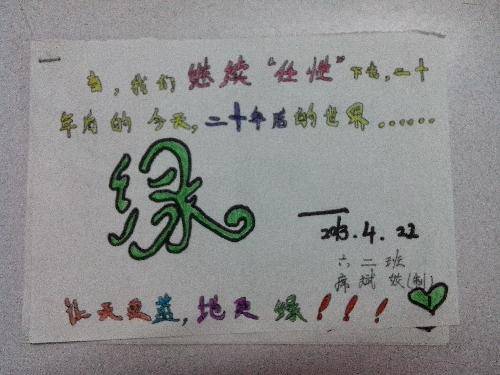 当，我们继续“任性”下去，二十
年前的今天，二十年后的世界……
绿
2013.4.22
六二班
席斌姣(制)
让天更蓝，地更绿！！！